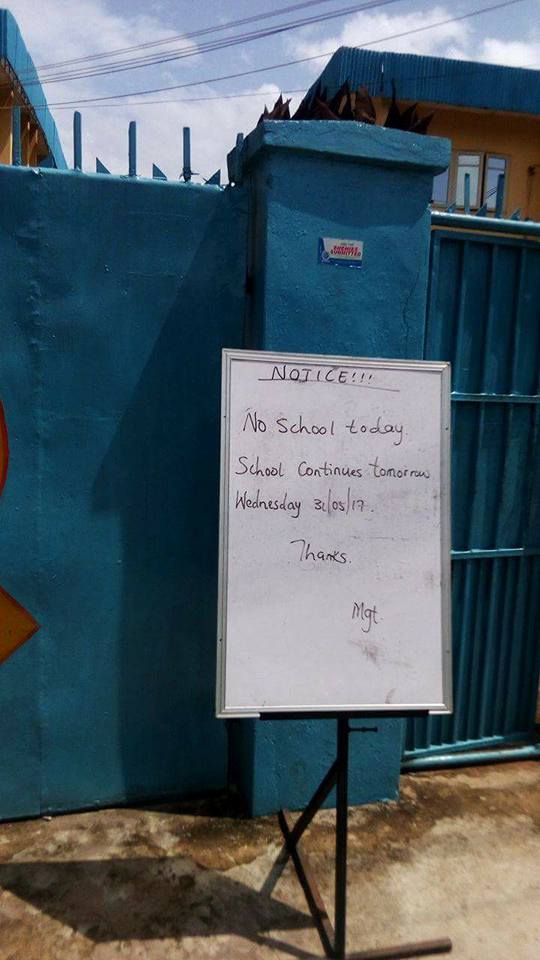 NOTICE!!!
No School today.
School Continues tomorrow
Wednesday 31/05/17.
Thanks.
Mgt.